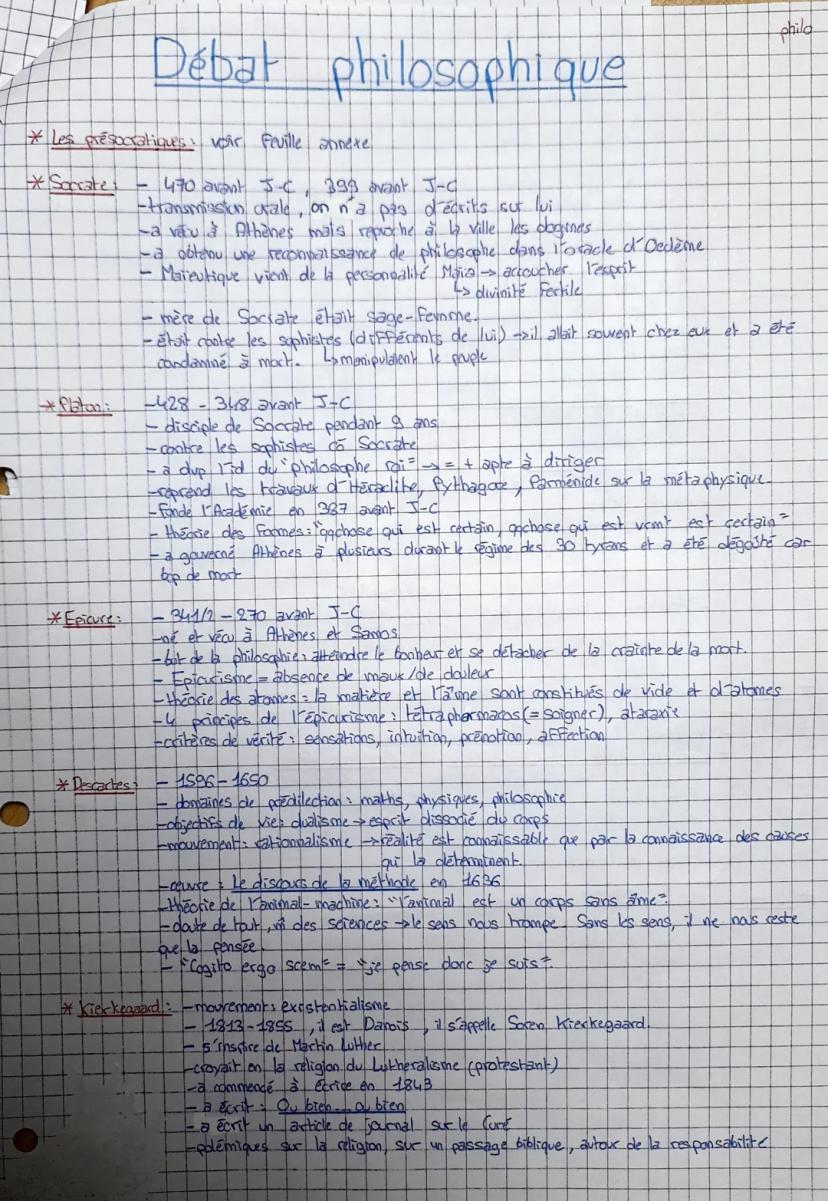 philo
Débat philosophique
* Les présocratiques : voir feuille annexe
* Socrate : - 470 avant J-C, 399 avant J-C
- transmission orale, on n'a pas d'écrits sur lui
- a vécu à Athènes mais reproche à la ville les dogmes
- a obtenu une reconnaissance de philosophe dans l'oracle d'Oedème
- Maïeutique vient de la personnalité Maïa → accoucher l'esprit
↳ divinité fertile
- mère de Socrate était sage-femme.
- était contre les sophistes (différents de lui) → il allait souvent chez eux et a été
condamné à mort. ↳ manipulaient le peuple
* Platon : - 428 - 348 avant J-C
- disciple de Socrate pendant 9 ans
- contre les sophistes cô Socrate
- a dvp l'id du "philosophe roi" → = + apte à diriger
- reprend les travaux d'Héraclite, Pythagore, Parménide sur la métaphysique.
- fonde l'Académie en 387 avant J-C
- théorie des Formes : "qqchose qui est certain, qqchose qui est vrmt est certain"
- a gouverné Athènes à plusieurs durant le régime des 30 tyrans et a été dégoûté car
trop de mort
* Epicure : - 341/2 - 270 avant J-C
- né et vécu à Athènes et Samos
- but de la philosophie : atteindre le bonheur et se détacher de la crainte de la mort.
- Epicurisme = absence de maux/de douleur
- théorie des atomes : la matière et l'âme sont constitués de vide et d'atomes
- 4 principes de l'épicurisme : tétrapharmacos (= soigner), ataraxie
- critères de vérité : sensations, intuition, prénotion, affection
* Descartes : - 1596 - 1650
- domaines de prédilection : maths, physiques, philosophie
- objectifs de vie : dualisme → esprit dissocié du corps
- mouvement : rationnalisme → réalité est connaissable que par la connaissance des causes
qui la déterminent.
- œuvre : Le discours de la méthode en 1636
- théorie de l'animal-machine : "l'animal est un corps sans âme".
- doute de tout, m̂ des sciences → le sens nous trompe. Sans les sens, il ne nous reste
que la pensée
- "Cogito ergo scem" = "je pense donc je suis".
* Kierkegaard : - mouvement : existentialisme
- 1813-1855, il est Danois, il s'appelle Soren Kierkegaard.
- s'inspire de Martin Luther
- croyait en la religion du Lutheralisme (protestant)
- a commencé à écrire en 1843
- a écrit : Ou bien... ou bien
- a écrit un article de journal sur le Curé
- polémiques sur la religion, sur un passage biblique, autour de la responsabilité